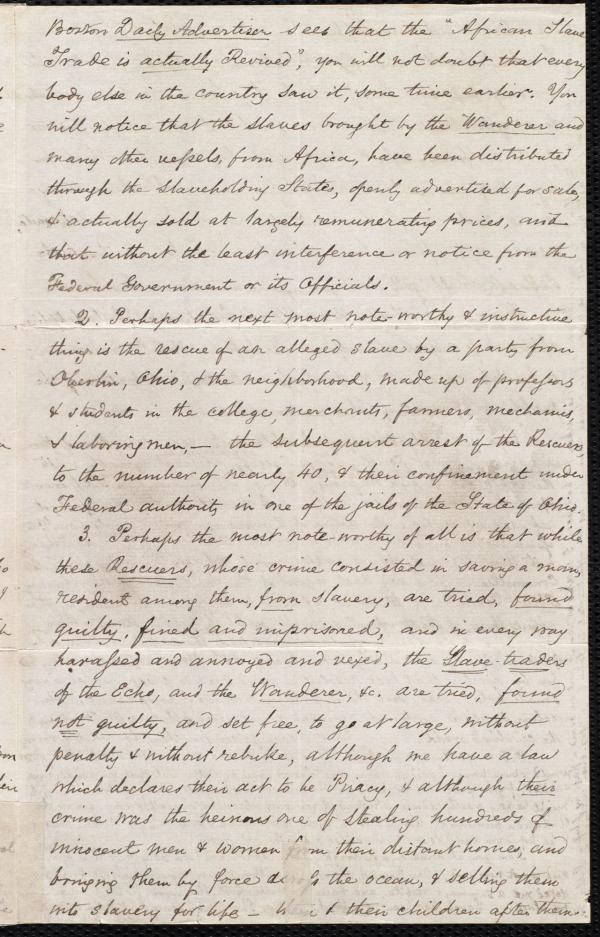 Boston Daily Advertiser sees that the "African Slave
Trade is actually Revived", you will not doubt that every
body else in the country saw it, some time earlier. You
will notice that the slaves brought by the Wanderer and
many other vessels, from Africa, have been distributed
through the slaveholding States, openly advertised for sale,
& actually sold at largely remunerating prices, and
that without the least interference or notice from the
Federal Government or its Officials.
2. Perhaps the next most note-worthy & instructive
thing is the rescue of an alleged slave by a party from
Oberlin, Ohio, & the neighborhood, made up of professors
& students in the college, merchants, farmers, mechanics,
& laboring men, — the subsequent arrest of the Rescuers,
to the number of nearly 40, & their confinement under
Federal authority in one of the jails of the State of Ohio.
3. Perhaps the most note-worthy of all is that while
these Rescuers, whose crime consisted in saving a man,
resident among them, from slavery, are tried, found
guilty, fined and imprisoned, and in every way
harassed and annoyed and vexed, the Slave-traders
of the Echo, and the Wanderer, &c. are tried, found
not guilty, and set free, to go at large, without
penalty & without rebuke, although we have a law
which declares their act to be Piracy, & although their
crime was the heinous one of stealing hundreds of
innocent men & women from their distant homes, and
bringing them by force across the ocean, & selling them
into slavery for life – & their children after them.